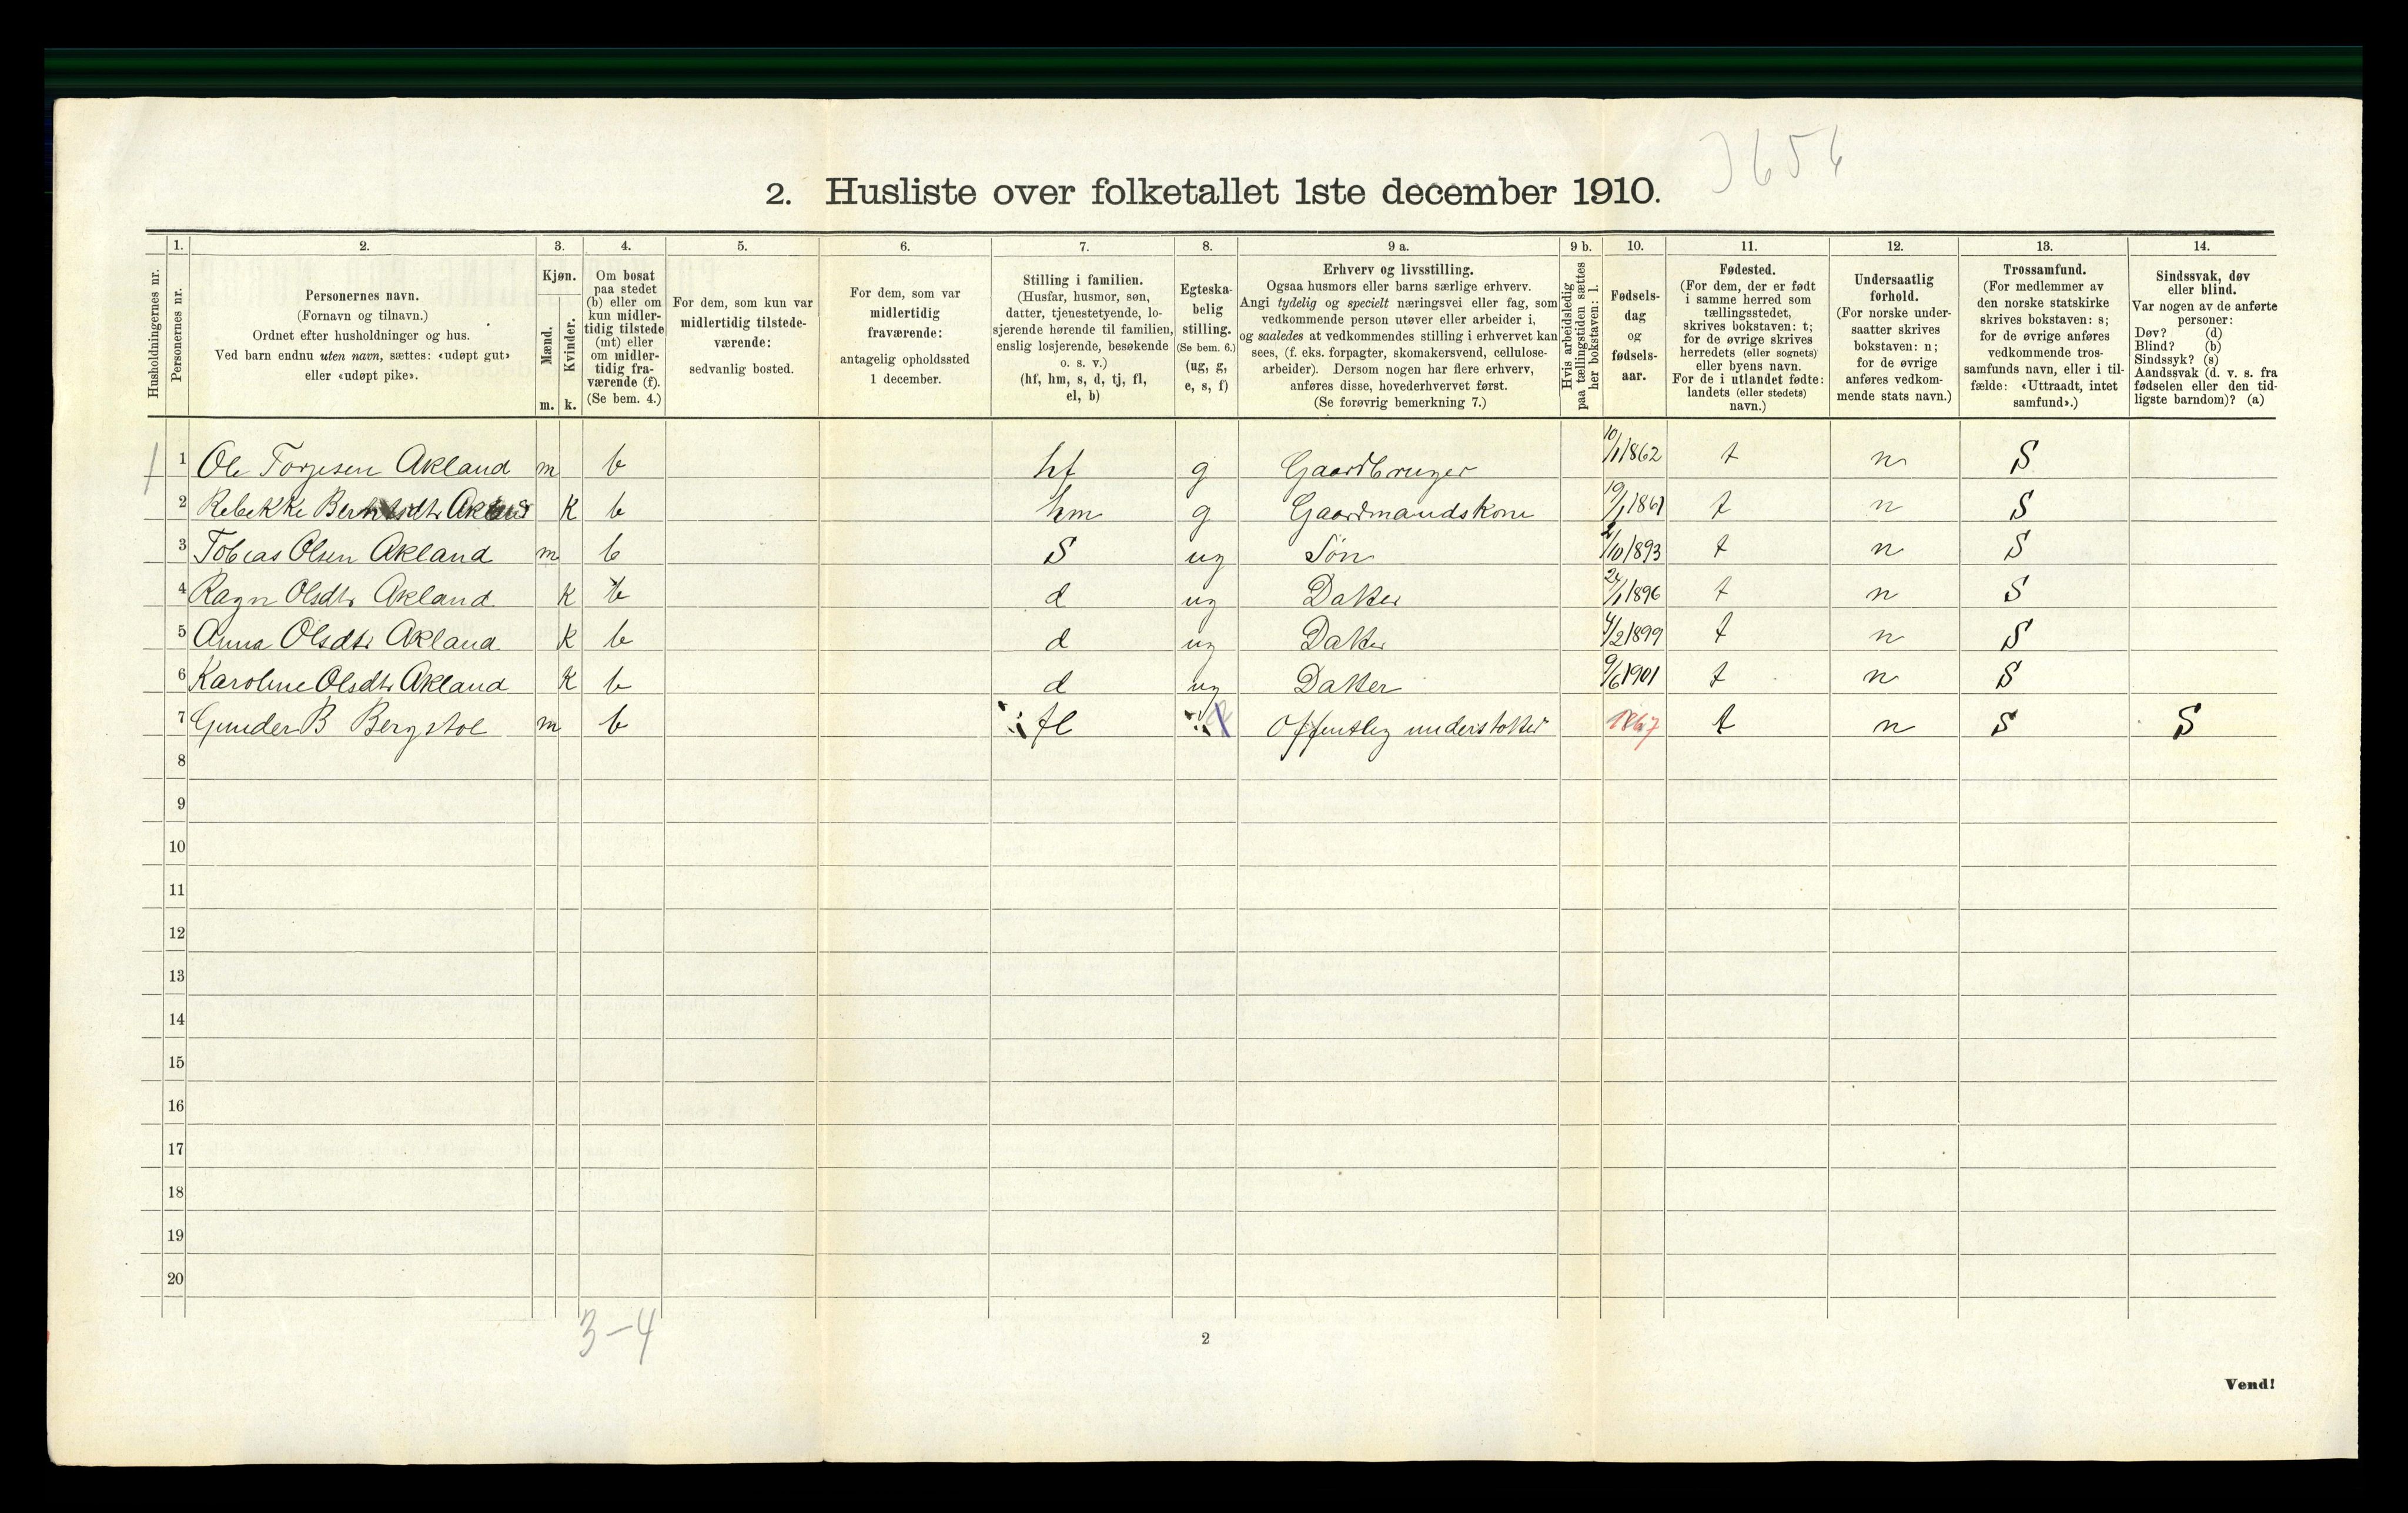 3656
2. Husliste over folketallet 1ste december 1910.
Husholdningernes nr.
1.
Personernes nr.
2.
Personernes navn.
(Fornavn og tilnavn.)
Ordnet efter husholdninger og hus.
Ved barn endnu uten navn, sættes: «udøpt gut»
eller «udøpt pike».
3.
Kjøn.
Mænd.
Kvinder.
m. k.
4.
Om bosat
paa stedet
(b) eller om
kun midler-
tidig tilstede
(mt) eller
om midler-
tidig fra-
værende (f).
(Se bem. 4.)
5.
For dem, som kun var
midlertidig tilstede-
værende:
sedvanlig bosted.
6.
For dem, som var
midlertidig
fraværende:
antagelig opholdssted
1 december.
7.
Stilling i familien.
(Husfar, husmor, søn,
datter, tjenestetyende, lo-
sjerende hørende til familien,
enslig losjerende, besøkende
o. s. v.)
(hf, hm, s, d, tj, fl,
el, b)
8.
Egteska-
belig
stilling.
(Se bem. 6.)
(ug, g,
e, s, f)
9 a.
Erhverv og livsstilling.
Ogsaa husmors eller barns særlige erhverv.
Angi tydelig og specielt næringsvei eller fag, som
vedkommende person utøver eller arbeider i,
og saaledes at vedkommendes stilling i erhvervet kan
sees, (f. eks. forpagter, skomakersvend, cellulose-
arbeider). Dersom nogen har flere erhverv,
anføres disse, hovederhvervet først.
(Se forøvrig bemerkning 7.)
9 b.
Hvis arbeidsledig
paa tællingstiden sættes
her bokstaven: l.
10.
Fødsels-
dag
og
fødsels-
aar.
11.
Fødested.
(For dem, der er født
i samme herred som
tællingsstedet,
skrives bokstaven: t;
for de øvrige skrives
herredets (eller sognets)
eller byens navn.
For de i utlandet fødte:
landets (eller stedets)
navn.)
12.
Undersaatlig
forhold.
(For norske under-
saatter skrives
bokstaven: n;
for de øvrige
anføres vedkom-
mende stats navn.)
13.
Trossamfund.
(For medlemmer av
den norske statskirke
skrives bokstaven: s;
for de øvrige anføres
vedkommende tros-
samfunds navn, eller i til-
fælde: «Uttraadt, intet
samfund».)
14.
Sindssvak, døv
eller blind.
Var nogen av de anførte
personer:
Døv? (d)
Blind? (b)
Sindssyk? (s)
Aandssvak (d. v. s. fra
fødselen eller den tid-
ligste barndom)? (a)
1 1 Ole Torjesen Akland m b hf g Gaardbruger 10/1 1862 t n S
2 Rebekke Berntsdtr Akland K b hm g Gaardmandskone 19/1 1861 t n S
3 Tobias Olsen Akland m b S ug Søn 2/10 1893 t n S
4 Ragn Olsdtr Akland K b d ug Datter 24/1 1896 t n S
5 Anna Olsdtr Akland K b d ug Datter 4/2 1899 t n S
6 Karoline Olsdtr Akland K b d ug Datter 9/6 1901 t n S
7 Gunder B Bergstøl m b fl Offentlig understøttet 1867 t n S S
8
9
10
11
12
13
14
15
16
17
18
19
20
3-4
2
Vend!